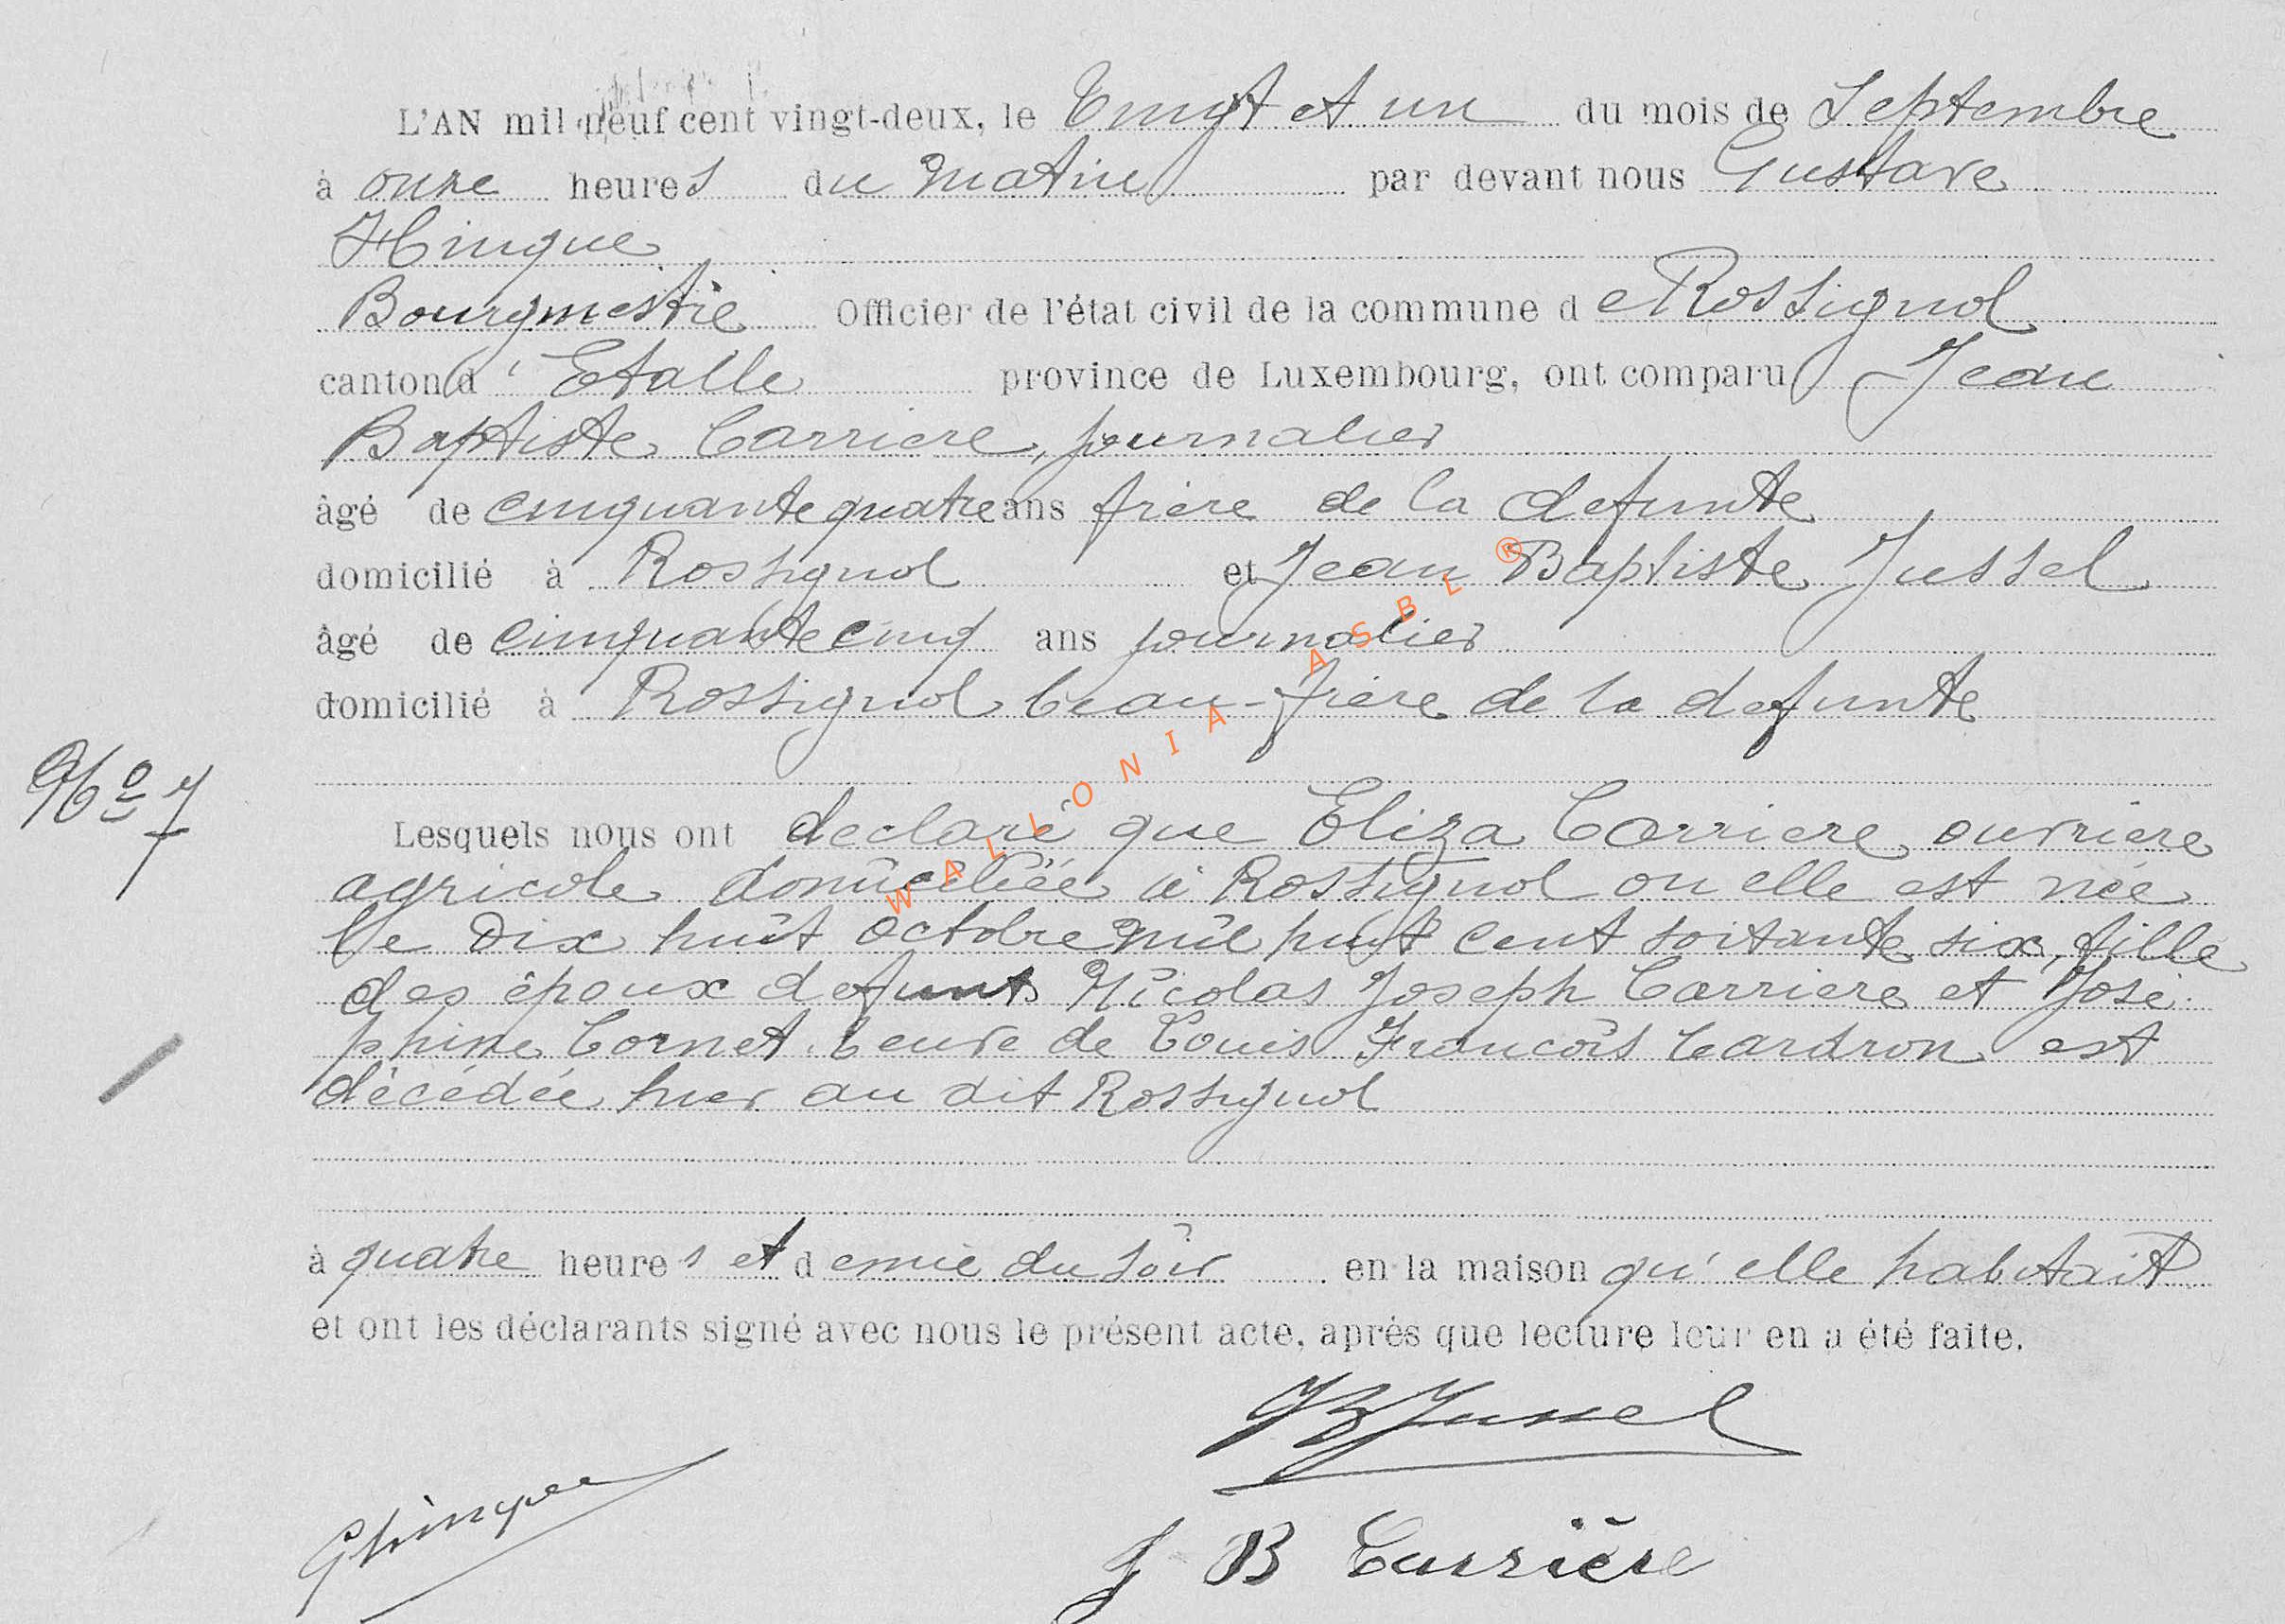 L'AN mil neuf cent vingt-deux, le Vingt et un du mois de Septembre
à onze heures du matin par devant nous Gustave
Hinque
Bourgmestre Officier de l'état civil de la commune de Rossignol
canton d'Etalle province de Luxembourg, ont comparu Jean
Baptiste Carriere, journalier
âgé de cinquante quatre ans frère de la defunte
domicilié à Rossignol et Jean Baptiste Jussel
âgé de cinquante cinq ans journalier
domicilié à Rossignol beau-frère de la defunte
No 7
Lesquels nous ont declaré que Eliza Carriere ouvriere
agricole domiciliée à Rossignol ou elle est née
le Dix huit octobre mil huit cent soixante six, fille
des époux defunts Nicolas Joseph Carriere et José-
phine Cornet veuve de Louis François Cardron est
décédée hier au dit Rossignol
à quatre heures et demie du soir en la maison qu'elle habitait
et ont les déclarants signé avec nous le présent acte, après que lecture leur en a été faite.
JB Jussel
GHinque
J B Carrière
WALLONIA ASBL ®